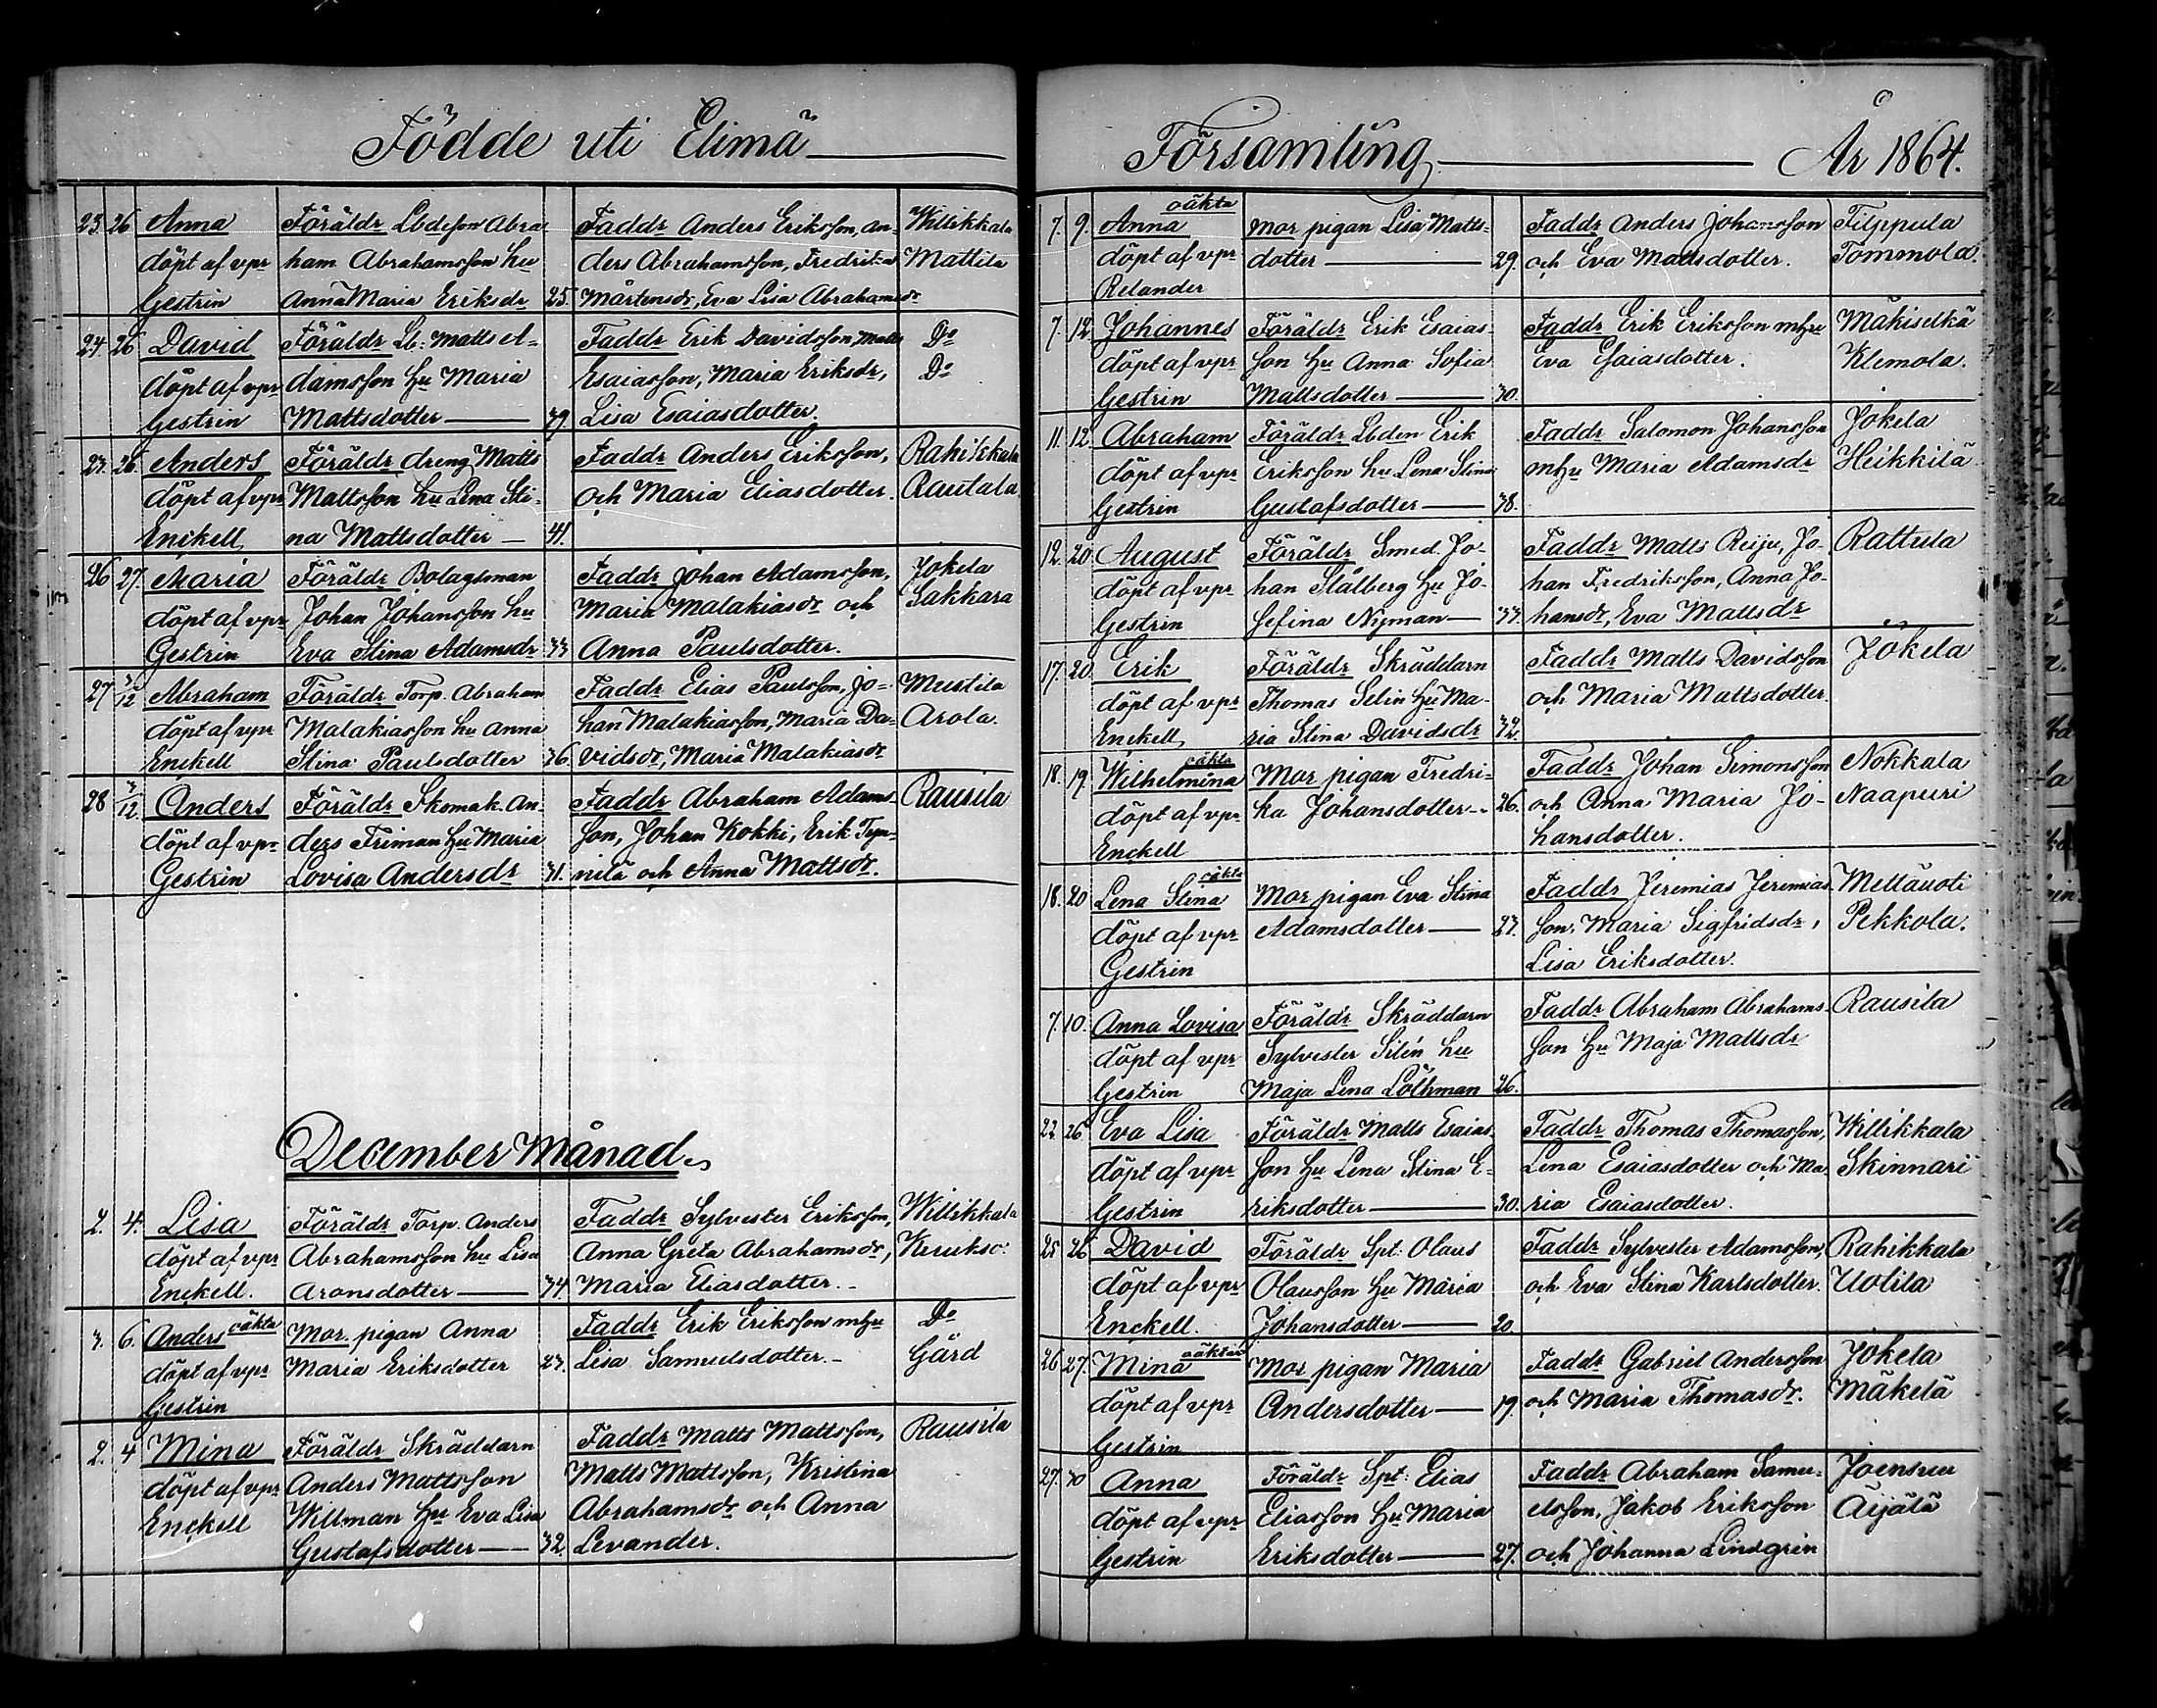 Födde uti Elimä
23. 26 Anna Föräldr Lbdeson Abra Faddr Anders Eriksson, An- Willikkala
döpt af vpr ham Abrahamsson hu ders Abrahamsson, Fredrika Mattila
Gestrin Anna Maria Eriksdr 25. Mårtensdr, Eva Lisa Abrahamsdr
24. 26 David Föräldr Lb: Matts A- Faddr Erik Davidsson, Matts Do
döpt af vpr damsson hu Maria Esaiasson, Maria Eriksdr, Do
Gestrin Mattsdotter 39. Lisa Esaiasdotter.
23. 26. Anders Föräldr dreng Matts Faddr Anders Eriksson, Rahikkala
döpt af vpr Mattsson hu Lena Sti- och Maria Eliasdotter. Rautala
Enckell na Mattsdotter 41.
26 27. Maria Föräldr Bolagsman Faddr Johan Adamsson, Jokela
döpt af vpr Johan Johansson hu Maria Malakiasdr och Sakkara
Gestrin Eva Stina Adamsdr 33 Anna Paulsdotter.
27 3/12 Abraham Föräldr Torp. Abraham Faddr Elias Paulsson, Jo- Mustila
döpt af vpr Malakiasson hu Anna han Malakiasson, Maria Da- Arola.
Enckell Stina Paulsdotter 36 vidsdr, Maria Malakiasdr
28 3/12. Anders Föräldr Skomak. An- Faddr Abraham Adams- Rausila
döpt af vpr ders Friman hu Maria son, Johan Kokki, Erik Tyn-
Gestrin Lovisa Andersdr 31. nilä och Anna Mattsdr.
December Månad
2. 4. Lisa Föräldr Torp. Anders Faddr Sylvester Eriksson, Willikkala
döpt af vpr Abrahamsson hu Lisa Anna Greta Abrahamsdr,
Enckell. Aronsdotter 34 Maria Eliasdotter.
3. 6. Anders oäkta Mor. pigan Anna Faddr Erik Eriksson mhu Do
döpt af vpr Maria Eriksdotter 23. Lisa Samuelsdotter. Gård
Gestrin
2. 4 Mina Föräldr Skräddarn Faddr Matts Mattsson, Rausila
döpt af vpr Anders Mattsson Matts Mattsson, Kristina
Enckell Willman hu Eva Lisa Abrahamsdr och Anna
Gustafsdotter 32. Levander.
Församling År 1864.
7. 9. Anna oäkta Mor pigan Lisa Matts- Faddr Anders Johansson Filppula
döpt af vpr dotter 29. och Eva Mattsdotter. Tommola.
Relander
7. 12. Johannes Föräldr Erik Esaias- Faddr Erik Eriksson mhu Mäkiselkä
döpt af vpr son hu Anna Sofia Eva Esaiasdotter. Klemola.
Gestrin Mattsdotter 30.
11. 12. Abraham Föräldr Lbden Erik Faddr Salomon Johansson Jokela
döpt af vpr Eriksson hu Lena Stina mhu Maria Adamsdr Heikkilä
Gestrin Gustafsdotter 38.
12. 20. August Föräldr Smed. Jo- Faddr Matts Reiju, Jo- Rattula
döpt af vpr han Stålberg hu Jo- han Fredriksson, Anna Jo-
Gestrin sefina Nyman 33. hansdr, Eva Mattsdr
17. 20. Erik Föräldr Skräddarn Faddr Matts Davidsson Jokela
döpt af vpr Thomas Selin hu Ma- och Maria Mattsdotter.
Enckell ria Stina Davidsdr 32.
18. 19. Wilhelmina oäkta Mor pigan Fredri- Faddr Johan Simonsson Nokkala
döpt af vpr ka Johansdotter 26. och Anna Maria Jo- Naapuri
Enckell hansdotter.
18. 20 Lena Stina oäkta Mor pigan Eva Stina Faddr Jeremias Jeremias Mettäuoti
döpt af vpr Adamsdotter 23. son, Maria Sigfridsdr, Pekkola.
Gestrin Lisa Eriksdotter.
7. 10. Anna Lovisa Föräldr Skräddarn Faddr Abraham Abrahams- Rausila
döpt af vpr Sylvester Silén hu son hu Maja Mattsdr
Gestrin Maja Lena Löthman 26.
22 26 Eva Lisa Föräldr Matts Esaias- Faddr Thomas Thomasson, Willikkala
döpt af vpr son hu Lena Stina E- Lena Esaiasdotter och Ma- Skinnari
Gestrin riksdotter 30. ria Esaiasdotter.
25 26 David Föräldr Spt: Olaus Faddr Sylvester Adamsson, Rahikkala
döpt af vpr Olausson hu Maria och Eva Stina Karlsdotter. Uotila
Enckell. Johansdotter 20.
26 27. Mina oäkta Mor pigan Maria Faddr Gabriel Andersson Jokela
döpt af vpr Andersdotter 19. och Maria Thomasdr. Mäkelä
Gestrin
27. 30 Anna Föräldr Spt: Elias Faddr Abraham Samu- Joensuu
döpt af vpr Eliasson hu Maria elsson, Jakob Eriksson Äijälä
Gestrin Eriksdotter 27. och Johanna Lindgrin